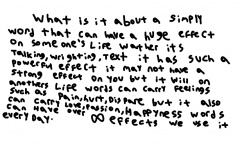 What is it about a simply
word that can have a HUGE effect
on someone's Life wather its
Talking, wrighting, Text it has such a
powerful effect it may not have a
strong effect on you but it will on
anothers Life words can carry feelings
such as Pain, hurt, Dispare but it also
can carry Love, Passion, Happyness words
can Have over ∞ effects we use it
every day.